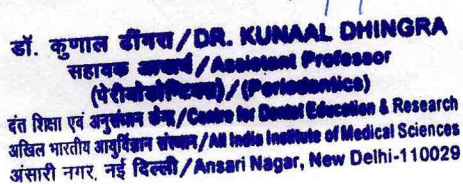 डॉ. कुणाल ढींगरा/DR. KUNAAL DHINGRA
सहायक आचार्य/Assistant Professor
(पेरीयोडोन्टिक्स)/(Periodontics)
दंत शिक्षा एवं अनुसंधान केन्द्र/Centre for Dental Education & Research
अखिल भारतीय आयुर्विज्ञान संस्थान/All India Institute of Medical Sciences
अंसारी नगर, नई दिल्ली/Ansari Nagar, New Delhi-110029